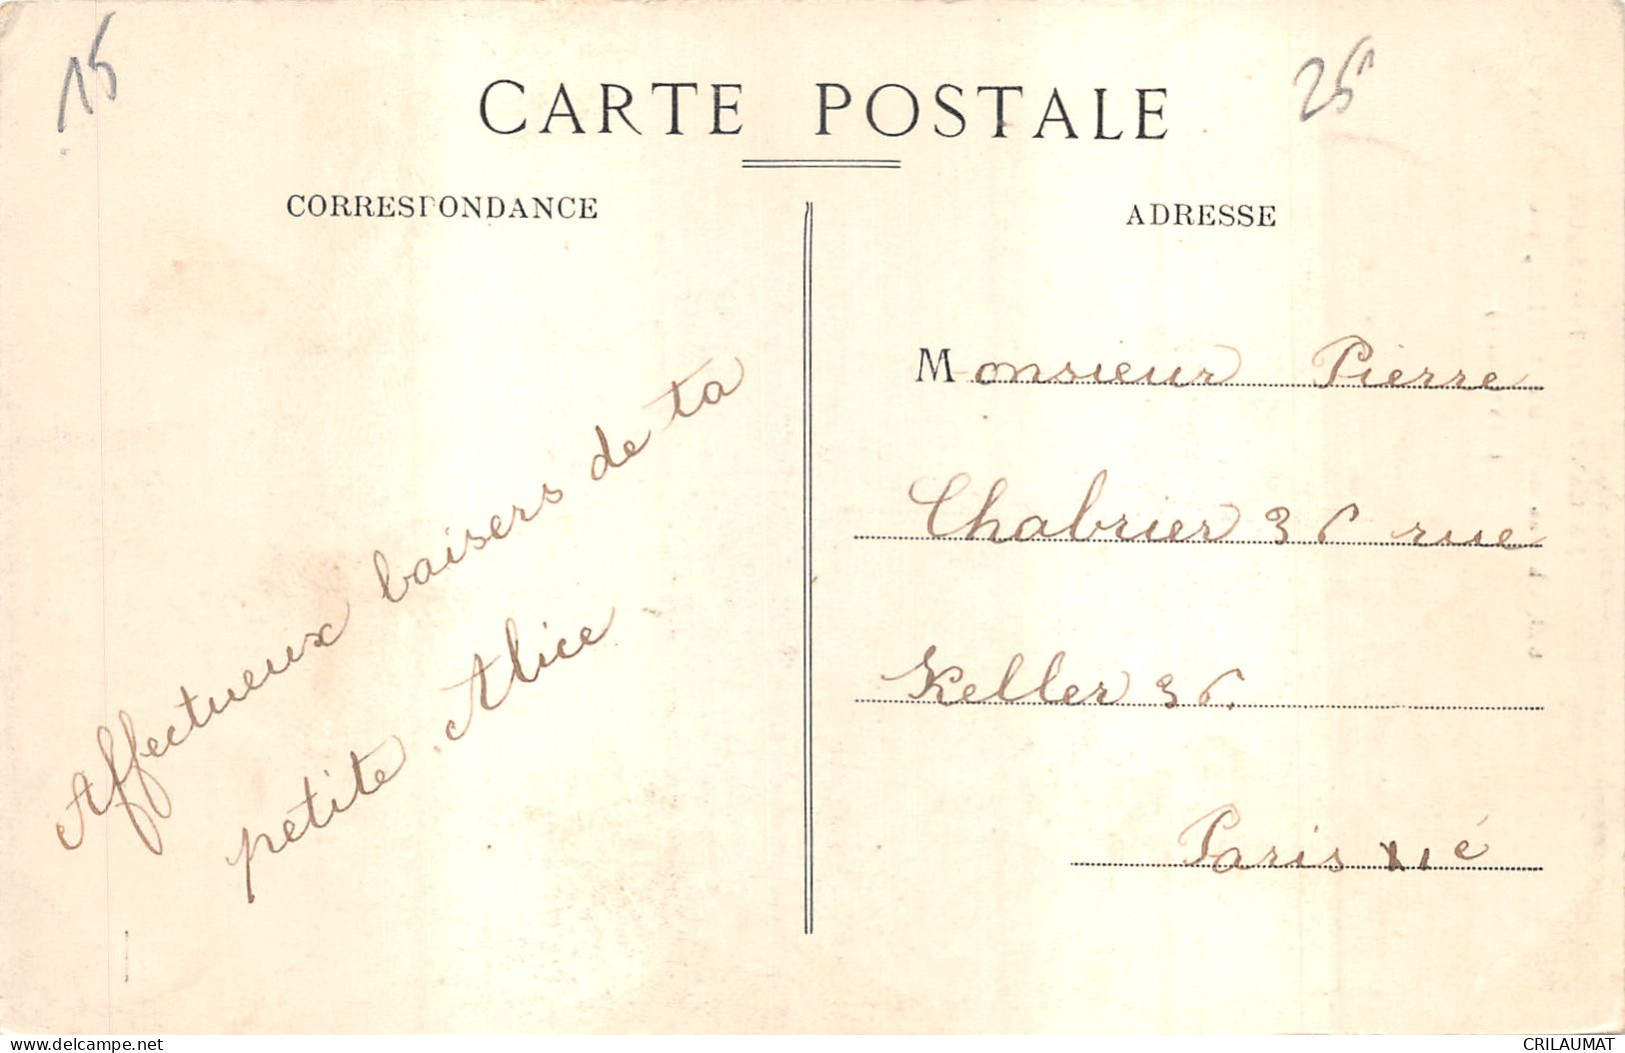 15
25
CARTE POSTALE
CORRESPONDANCE
ADRESSE
Affectueux baisers de ta
petite Alice
Monsieur Pierre
Chabrier 36 rue
Keller 36.
Paris XIe
www.delcampe.net
CRILAUMAT